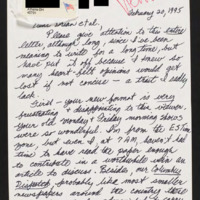 February 20, 1995
Dear Brian et al,
Please give attention to the entire
letter, although long, since I've been
meaning to write in a long time, but
have put it off because I knew the
many heart-felt opinions would get
lost if not concise - a trait I sadly
lack.
First - your new format is very
frustrating & disappointing to this viewer.
Your old Monday & Friday morning shows
were so wonderful. I'm from the EST
zone, but even I at 7 AM, haven't had
time to have read the paper enough
to contribute in a worthwhile when an
article to discuss. Besides, our Columbus
Dispatch, probably like most smaller
newspapers around the country